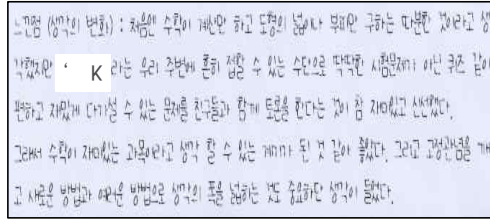 느낀점 (생각의 변화) : 처음엔 수학이 계산만 하고 도형의 넓이나 부피만 구하는 따분한 것이라고 생
각했지만 ' K 라는 우리 주변에 흔히 접할 수 있는 수단으로 딱딱한 시험문제가 아닌 퀴즈 같이
편하고 재밌게 다가설 수 있는 문제를 친구들과 함께 토론을 한다는 것이 참 재미있고 신선했다.
그래서 수학이 재미있는 과목이라고 생각 할 수 있는 계기가 된 것 같아 좋았다. 그리고 고정관념을 깨
고 새로운 방법과 여러운 방법으로 생각의 폭을 넓히는 것도 중요하단 생각이 들었다.